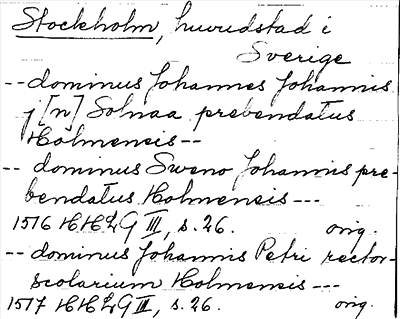 Stockholm, huvudstad i
Sverige
-- dominus Johannes Johannis
j [n] Solnaa prebendatus
Holmensis --
-- dominus Sweno Johannis pre-
bendatus Holmensis ---
1516 HHLG III, s. 26. orig.
-- dominus Johannis Petri rector
scolarium Holmensis ---
1517 HHLG III, s. 26. orig.